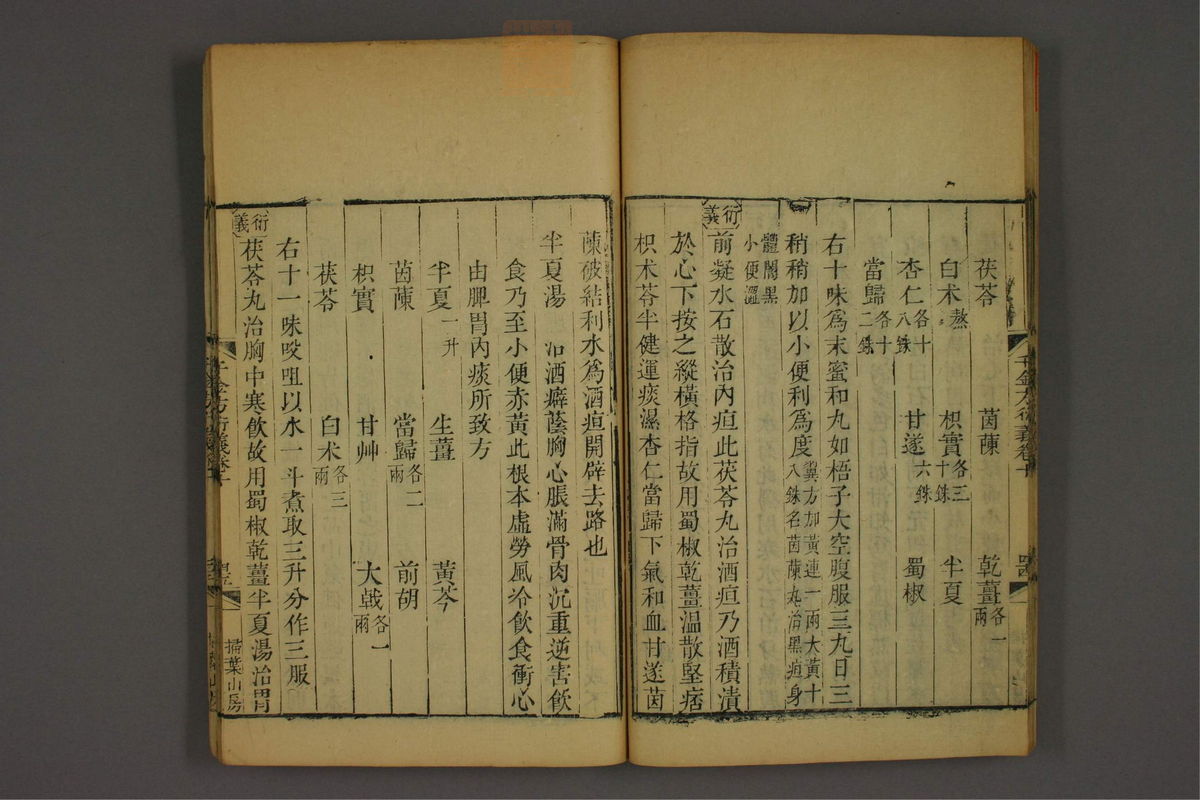 茯苓 茵蔯 乾薑各一兩
白术熬 枳實各三十銖 半夏
杏仁各十八銖 甘遂六銖 蜀椒
當歸各十二銖
右十味爲末蜜和丸如梧子大空腹服三九日三
稍稍加以小便利爲度翼方加黃連一兩大黃十八銖名茵蔯丸治黑疸身
體闇黑小便澀
衍義
前凝水石散治內疸此茯苓丸治酒疸乃酒積漬
於心下按之縱橫格指故用蜀椒乾薑溫散堅痞
枳术苓半健運痰濕杏仁當歸下氣和血甘遂茵
蔯破結利水爲酒疸開辟去路也
半夏湯 治酒癖蔭胸心脹滿骨肉沉重逆害飲
食乃至小便赤黃此根本虛勞風冷飲食衝心
由脾胃內痰所致方
半夏一升 生薑 黃芩
茵蔯 當歸各二兩 前胡
枳實 甘艸 大戟各一兩
茯苓 白术各三兩
右十一味㕮咀以水一斗煮取三升分作三服
衍義
茯苓丸治胸中寒飲故用蜀椒乾薑半夏湯治胃
千金方衍義卷十
掃葉山房